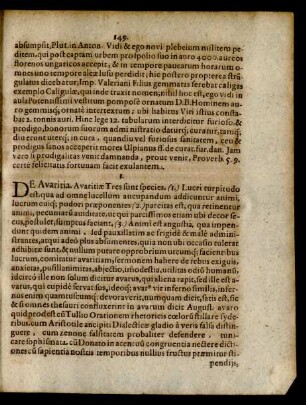 149.
absumpsit, Plut. in Anton. Vidi & ego novi plebeium militem pe-
ditem, qui post captam urbem pro ipolio suo in auro 4000 aureos
florenos ungaricos accepit, & in tempore paucarum horarum o-
mnes uno tempore alea lusu perdidit; hic postero propterea strã-
gulatus dicebatur. Imp. Valeriani Filius gemmatas ferebat caligas
exemplo Caligulæ, quia inde traxit nomen; nisi hoc est, ego vidi in
aula Potentissimi vestitum pompose ornatum D. B. Hominem auro
gemmisq; ornat interextum; ubi habitus Viri istius consta-
bat 2. tonnis auri. Hinc lege 12. tabularum interdicitur furioso, &
prodigo, bonorum suorum administratio datur q; curatur, tamq;
diu erunt uterq; in cura, quamdiu vel furiosus sanitatem,
prodigus sanos mores acceperit mores Ulpianus ff. de curat. fur. dan. Jam
vero is prodigalitas venit damnanda, prout venit, Proverb. 5. 9.
certe felicitatis fontibus sacit exulantem.
I.
DE Avaritia. Avaritiæ Tres sunt species. (1.) Lucri turpitudo
est. qua ad omne lucellum aucupandum adducuntur animi,
lucrum cuiq; podori præponentes; (2.) parcitas est, qua retinentur
animi, pecuniæ ut auiditate, ut qui parcissimos etiam ubi decor se-
cus, postulet, sumptus facient, (3.) Animi est angustia, qua impen-
dunt quidem animi, led pauxillatim ac frigidè & male admini-
strantes, acqui adeò plus absumentes, quia non ubi occasio tulerat
nubtibus certe, & nullum putere opprobrium utcumq; facient bus
lucrum, comitatur avaritiam, sermonem habere de rebus exiguis,
anxietas, solicitudo, invidia, destitutio, utilitas odiũ humani,
idcircò ille non solum dicitur avarus, qui aliena rapit, sed ille est a-
varus, qui cupidè servat sua, ideoq; avar⁹ vir inferno similis, infer-
nus enim quantoscunq; devoraverit, nunquam dicit, satis est, sic
& si omnes thesauri confluxerint in avarum dicit August. avaro
quid prodest eũ Tullio Orationem rhetoricis cœlorũ stillare syde-
ribus. cum Aristotile ancipiti Dialecticæ gladio à veris falsa distin-
guere, cum zenone falsitatem probabiliter defendere, tumi-
care sophismata. cũ Donato in accentuũ congruentia nectere dicti-
ones; cũ sapientia nostris temporibus nullius fructus præmitor sti-
pendijs,